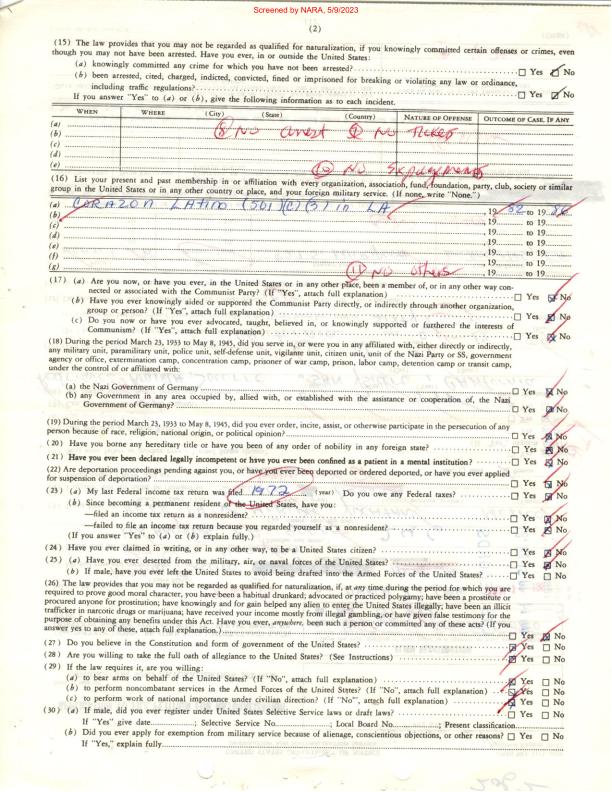 Screened by NARA, 5/9/2023
(2)
(15) The law provides that you may not be regarded as qualified for naturalization, if you knowingly committed certain offenses or crimes, even
though you may not have been arrested. Have you ever, in or outside the United States:
(a) knowingly committed any crime for which you have not been arrested? ☐ Yes ☑ No
(b) been arrested, cited, charged, indicted, convicted, fined or imprisoned for breaking or violating any law or ordinance,
including traffic regulations? ☐ Yes ☑ No
If you answer "Yes" to (a) or (b), give the following information as to each incident.
WHEN WHERE (City) (State) (Country) NATURE OF OFFENSE OUTCOME OF CASE, IF ANY
(a)
(b) ⑧ No arrest ⑨ No Ticket
(c)
(d)
(e) ⑩ No Expungements
(16) List your present and past membership in or affiliation with every organization, association, fund, foundation, party, club, society or similar
group in the United States or in any other country or place, and your foreign military service. (If none, write "None.")
(a) CORAZON LATINO (501)(C)(3) in LA , 19 82 to 19 86
(b) , 19 to 19
(c) , 19 to 19
(d) , 19 to 19
(e) , 19 to 19
(f) , 19 to 19
(g) ⑪ No others , 19 to 19
(17) (a) Are you now, or have you ever, in the United States or in any other place, been a member of, or in any other way con-
nected or associated with the Communist Party? (If "Yes", attach full explanation) ☐ Yes ☒ No
(b) Have you ever knowingly aided or supported the Communist Party directly, or indirectly through another organization,
group or person? (If "Yes", attach full explanation) ☐ Yes ☒ No
(c) Do you now or have you ever advocated, taught, believed in, or knowingly supported or furthered the interests of
Communism? (If "Yes", attach full explanation) ☐ Yes ☒ No
(18) During the period March 23, 1933 to May 8, 1945, did you serve in, or were you in any affiliated with, either directly or indirectly,
any military unit, paramilitary unit, police unit, self-defense unit, vigilante unit, citizen unit, unit of the Nazi Party or SS, government
agency or office, extermination camp, concentration camp, prisoner of war camp, prison, labor camp, detention camp or transit camp,
under the control of or affiliated with:
(a) the Nazi Government of Germany ☐ Yes ☒ No
(b) any Government in any area occupied by, allied with, or established with the assistance or cooperation of, the Nazi
Government of Germany? ☐ Yes ☒ No
(19) During the period March 23, 1933 to May 8, 1945, did you ever order, incite, assist, or otherwise participate in the persecution of any
person because of race, religion, national origin, or political opinion? ☐ Yes ☒ No
(20) Have you borne any hereditary title or have you been of any order of nobility in any foreign state? ☐ Yes ☒ No
(21) Have you ever been declared legally incompetent or have you ever been confined as a patient in a mental institution? ☐ Yes ☒ No
(22) Are deportation proceedings pending against you, or have you ever been deported or ordered deported, or have you ever applied
for suspension of deportation? ☐ Yes ☒ No
(23) (a) My last Federal income tax return was filed 1972 (year) Do you owe any Federal taxes? ☐ Yes ☒ No
(b) Since becoming a permanent resident of the United States, have you:
—filed an income tax return as a nonresident? ☐ Yes ☒ No
—failed to file an income tax return because you regarded yourself as a nonresident? ☐ Yes ☒ No
(If you answer "Yes" to (a) or (b) explain fully.)
(24) Have you ever claimed in writing, or in any other way, to be a United States citizen? ☐ Yes ☒ No
(25) (a) Have you ever deserted from the military, air, or naval forces of the United States? ☐ Yes ☒ No
(b) If male, have you ever left the United States to avoid being drafted into the Armed Forces of the United States? ☐ Yes ☐ No
(26) The law provides that you may not be regarded as qualified for naturalization, if, at any time during the period for which you are
required to prove good moral character, you have been a habitual drunkard; advocated or practiced polygamy; have been a prostitute or
procured anyone for prostitution; have knowingly and for gain helped any alien to enter the United States illegally; have been an illicit
trafficker in narcotic drugs or marijuana; have received your income mostly from illegal gambling, or have given false testimony for the
purpose of obtaining any benefits under this Act. Have you ever, anywhere, been such a person or committed any of these acts? (If you
answer yes to any of these, attach full explanation.) ☐ Yes ☒ No
(27) Do you believe in the Constitution and form of government of the United States? ☒ Yes ☐ No
(28) Are you willing to take the full oath of allegiance to the United States? (See Instructions) ☒ Yes ☐ No
(29) If the law requires it, are you willing:
(a) to bear arms on behalf of the United States? (If "No", attach full explanation) ☒ Yes ☐ No
(b) to perform noncombatant services in the Armed Forces of the United States? (If "No", attach full explanation) ☒ Yes ☐ No
(c) to perform work of national importance under civilian direction? (If "No", attach full explanation) ☒ Yes ☐ No
(30) (a) If male, did you ever register under United States Selective Service laws or draft laws? ☐ Yes ☐ No
If "Yes" give date ; Selective Service No. ; Local Board No. ; Present classification
(b) Did you ever apply for exemption from military service because of alienage, conscientious objections, or other reasons? ☐ Yes ☐ No
If "Yes," explain fully